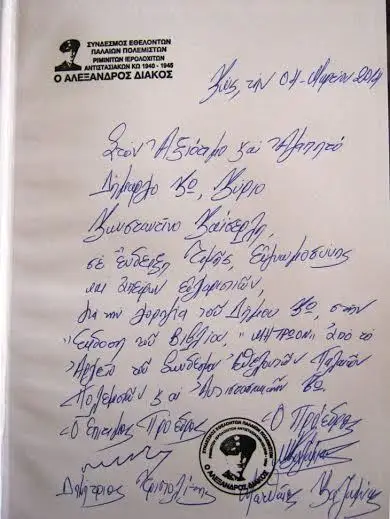 ΣΥΝΔΕΣΜΟΣ ΕΘΕΛΟΝΤΩΝ
ΠΑΛΑΙΩΝ ΠΟΛΕΜΙΣΤΩΝ
ΡΙΜΙΝΙΤΩΝ ΙΕΡΟΛΟΧΙΤΩΝ
ΑΝΤΙΣΤΑΣΙΑΚΩΝ ΚΩ 1940 - 1945
Ο ΑΛΕΞΑΝΔΡΟΣ ΔΙΑΚΟΣ
Κώς, την 04-Μαρτίου 2014
Στον Αξιότιμο και Αγαπητό
Δήμαρχο Κω, Κύριο
Κωνσταντίνο Καϊσερλη,
σε ένδειξη Τιμής, Ευγνωμοσύνης
και απείρων ευχαριστιών,
για την χορηγία του Δήμου Κω, στην
Έκδοση του Βιβλίου, "ΜΗΤΡΩΟΝ" από το
Αρχείο του Συνδέσμου Εθελοντών Παλαιών
Πολεμιστών και Αντιστασιακών Κω.
Ο Επίτιμος Πρόεδρος Ο Πρόεδρος
ΣΥΝΔΕΣΜΟΣ ΕΘΕΛΟΝΤΩΝ ΠΑΛΑΙΩΝ ΠΟΛΕΜΙΣΤΩΝ
Ο ΑΛΕΞΑΝΔΡΟΣ ΔΙΑΚΟΣ
Δημήτριος